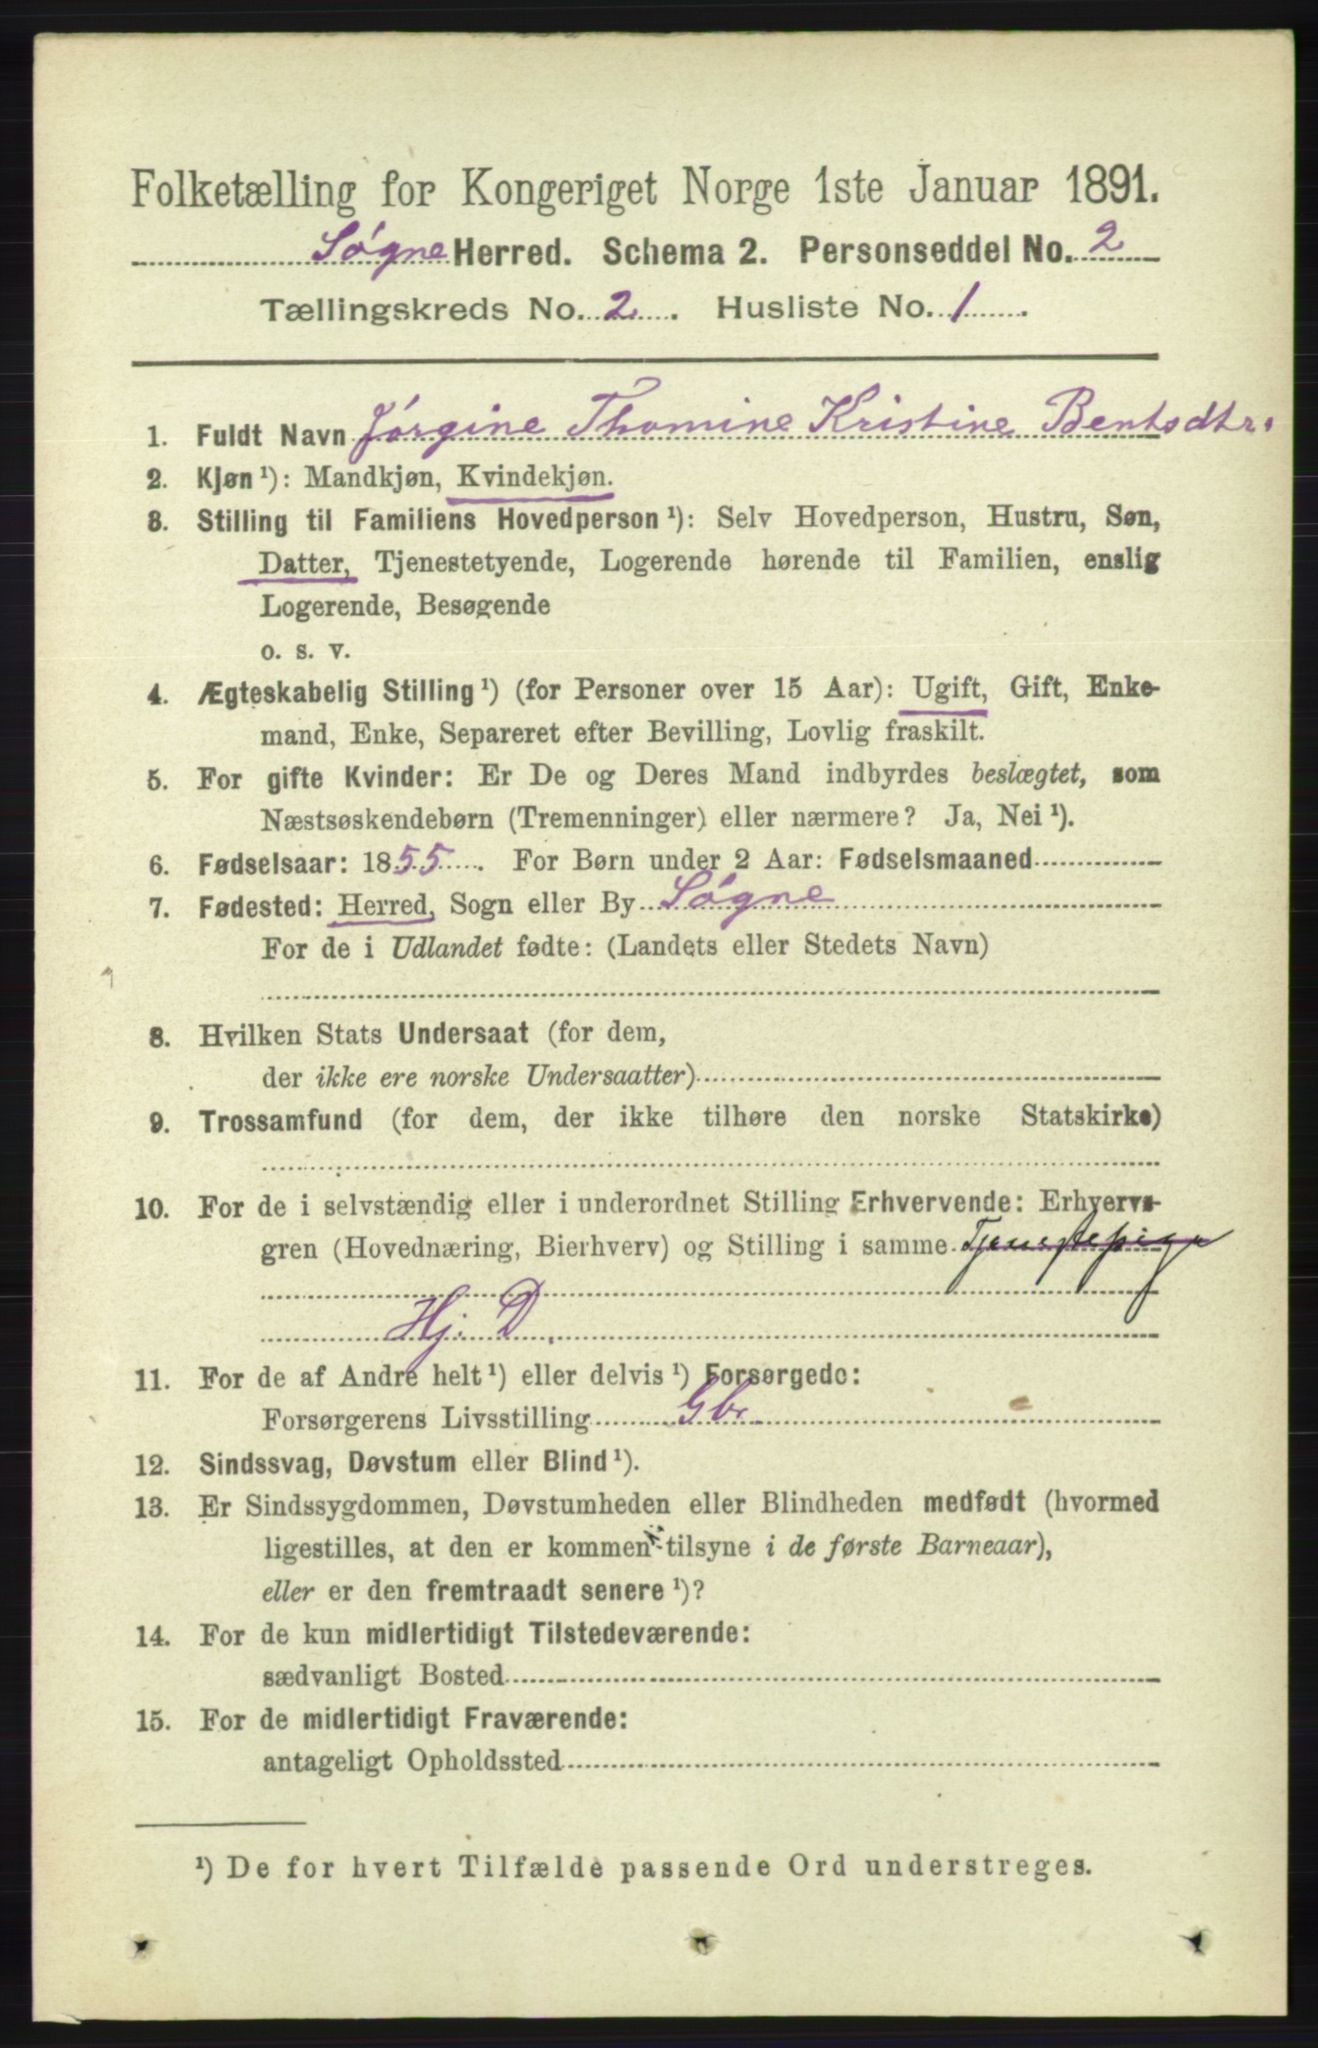 Folketælling for Kongeriget Norge 1ste Januar 1891.
Søgne Herred. Schema 2. Personseddel No. 2
Tællingskreds No. 2. Husliste No. 1.
1. Fuldt Navn Jørgine Thomine Kristine Bentsdtr.
2. Kjøn ¹): Mandkjøn, Kvindekjøn.
3. Stilling til Familiens Hovedperson ¹): Selv Hovedperson, Hustru, Søn,
Datter, Tjenestetyende, Logerende hørende til Familien, enslig
Logerende, Besøgende
o. s. v.
4. Ægteskabelig Stilling ¹) (for Personer over 15 Aar): Ugift, Gift, Enke-
mand, Enke, Separeret efter Bevilling, Lovlig fraskilt.
5. For gifte Kvinder: Er De og Deres Mand indbyrdes beslægtet, som
Næstsøskendebørn (Tremenninger) eller nærmere? Ja, Nei ¹).
6. Fødselsaar: 1855. For Børn under 2 Aar: Fødselsmaaned
7. Fødested: Herred, Sogn eller By Søgne
For de i Udlandet fødte: (Landets eller Stedets Navn)
8. Hvilken Stats Undersaat (for dem,
der ikke ere norske Undersaatter)
9. Trossamfund (for dem, der ikke tilhøre den norske Statskirke)
10. For de i selvstændig eller i underordnet Stilling Erhvervende: Erhvervs-
gren (Hovednæring, Bierhverv) og Stilling i samme Tjenestepige
Hj. D.
11. For de af Andre helt ¹) eller delvis ¹) Forsørgede:
Forsørgerens Livsstilling Gbr.
12. Sindssvag, Døvstum eller Blind ¹).
13. Er Sindssygdommen, Døvstumheden eller Blindheden medfødt (hvormed
ligestilles, at den er kommen tilsyne i de første Barneaar),
eller er den fremtraadt senere ¹)?
14. For de kun midlertidigt Tilstedeværende:
sædvanligt Bosted
15. For de midlertidigt Fraværende:
antageligt Opholdssted
¹) De for hvert Tilfælde passende Ord understreges.